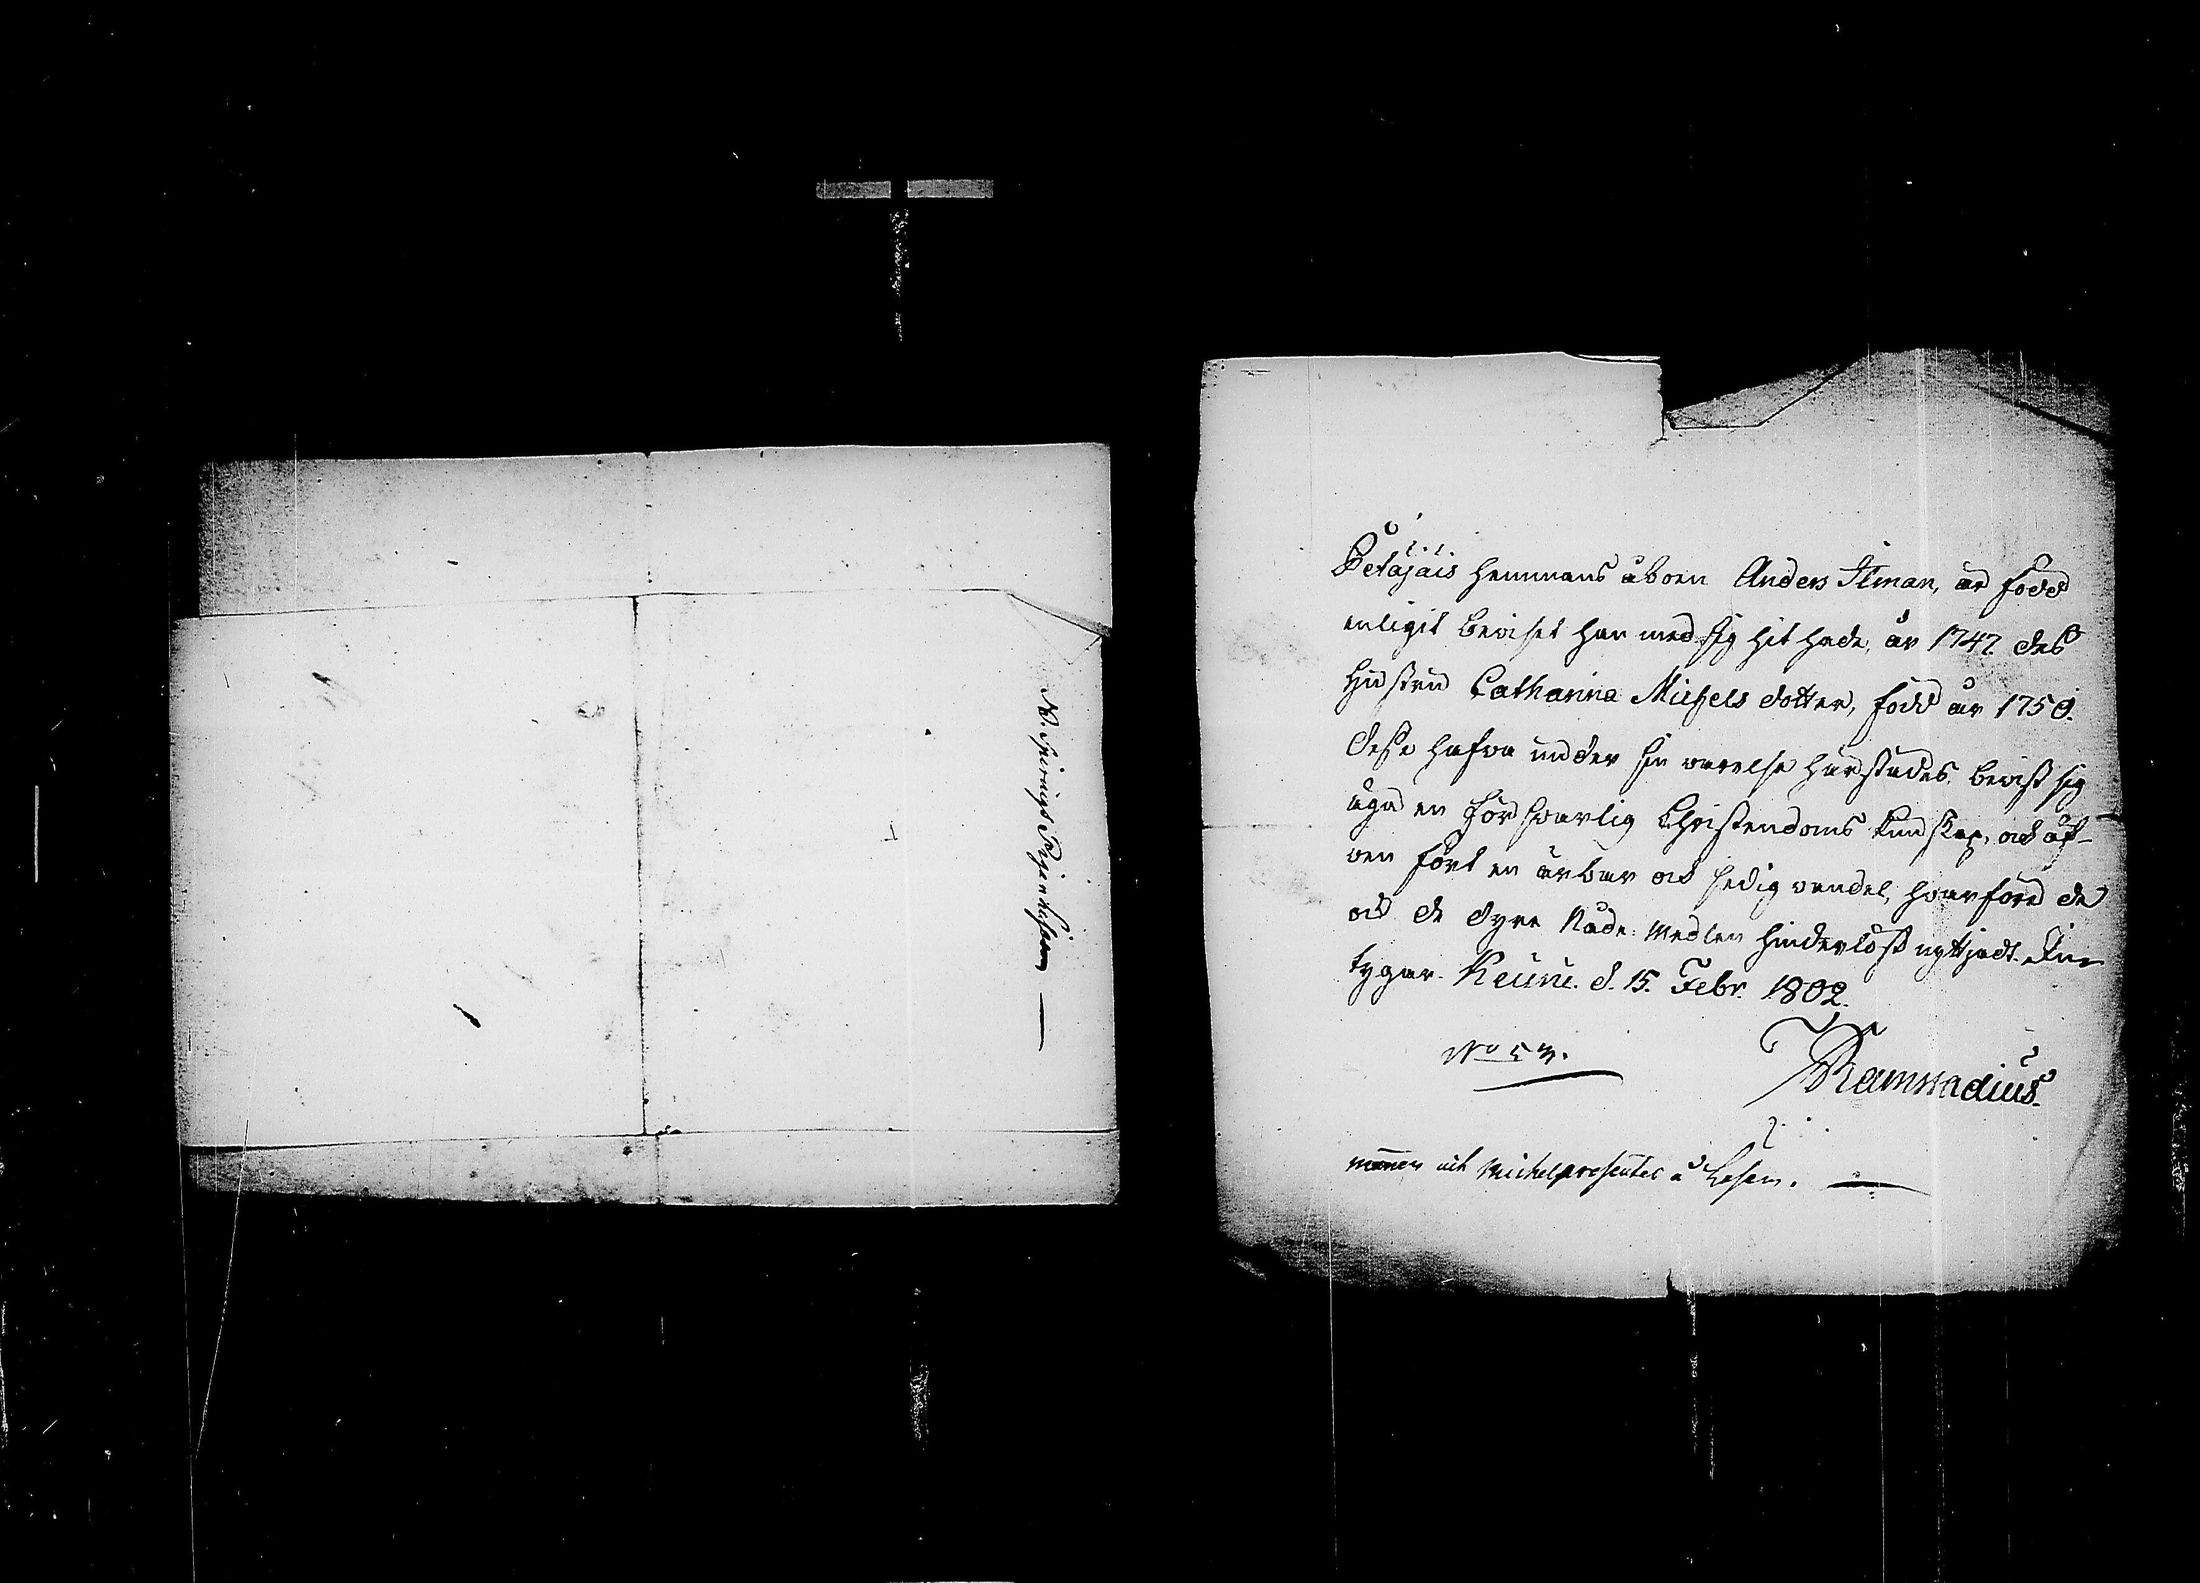 Petäjäis hemmans åboen Anders Ilman, är född
enligit beviset han med sig hit hade, år 1747. dess
Hustru Catharina Michels dotter, född år 1750.
desse hafva under sin varelse härstädes, bevist sig
äga en försvarlig Christendoms kundskap, och äf-
ven fört en ärbar och sedig vandel, hvarföre de
och de dyre Nåde medlen hinderlöst nyttjadt. Som
tygar. Keuru. d. 15. Febr. 1802.
No 57.
Ramstadius.